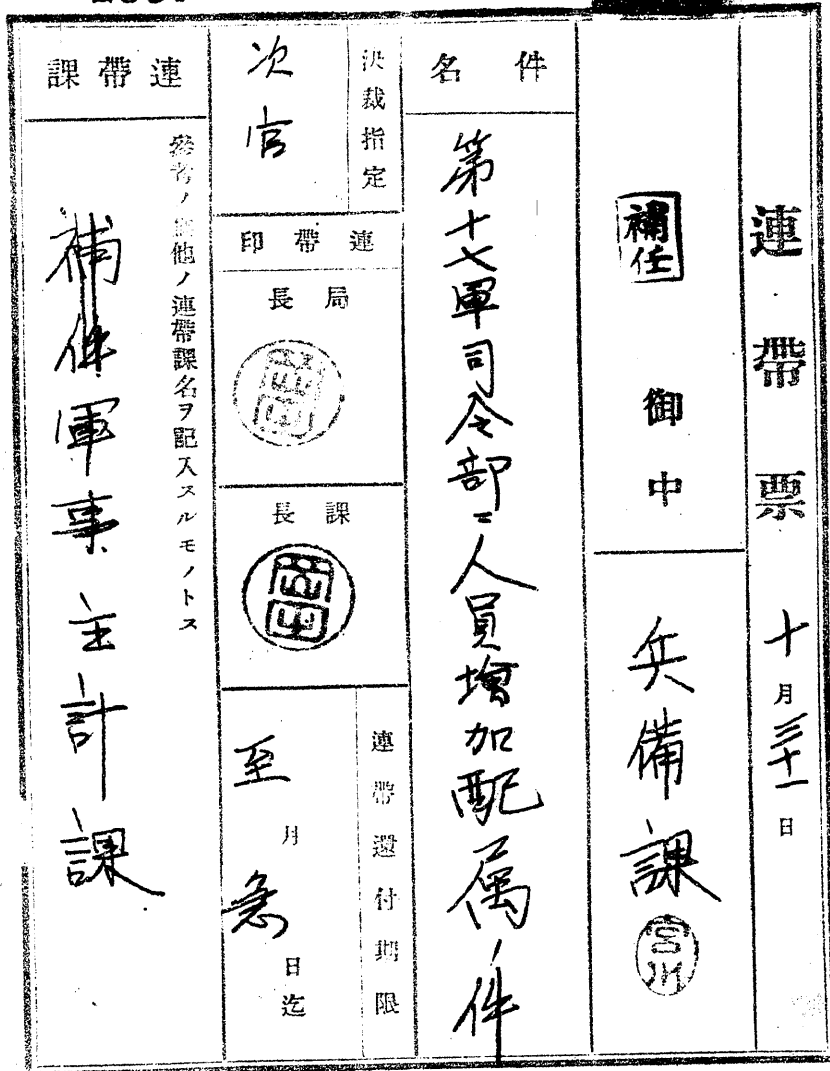 連帶票
十月三十一日
補任 御中
兵備課 宮川
件名
第十七軍司令部ニ人員増加配属ノ件
決裁指定
次官
連帶印
局長
課長
連帶還付期限
至月急日迄
連帶課
參考ノ爲他ノ連帶課名ヲ記入スルモノトス
補任軍事主計課